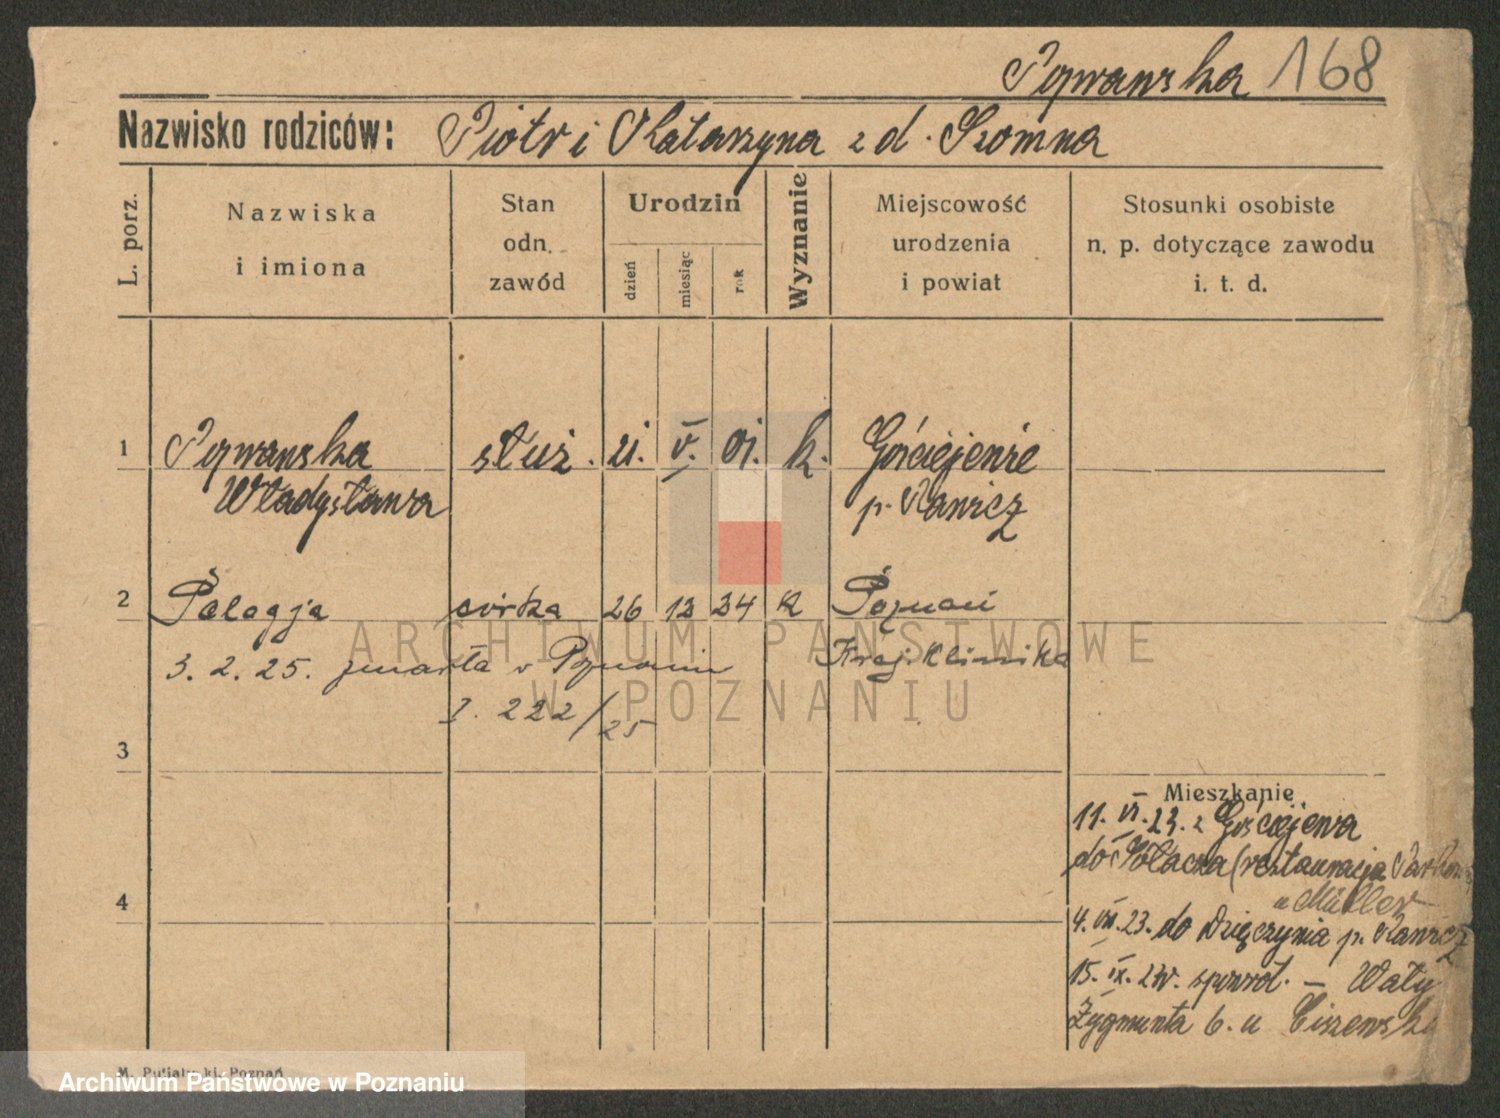 168
Nazwisko rodziców: Piotr i Katarzyna z d. Szomna
L. porz.
Nazwiska i imiona
Stan odn. zawód
Urodzin
dzień
miesiąc
rok
Wyznanie
Miejscowość urodzenia i powiat
Stosunki osobiste n. p. dotyczące zawodu i. t. d.
1 służ. 21. V. 01. k. Gościejewie
Władysława p. Rawicz
2 Pelagja córka 26 12 24 k Poznań
3. 2. 25. zmarła w Poznaniu Kraj. Klinika
I. 222/25
3
4
Mieszkanie
11. VI. 23. z Gościejewa
do Sołacza (restauracja
u Müller
4. VII. 23. do Dzięczynia p. Rawicz
15. IX. 24. spowrot. – Wały
Zygmunta 6. u
ARCHIWUM PAŃSTWOWE
W POZNANIU
M. Putiatycki, Poznań
Archiwum Państwowe w Poznaniu